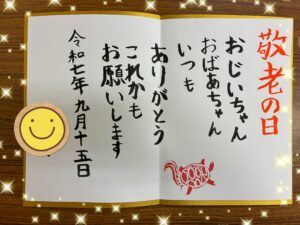 敬老の日
おじいちゃん
おばあちゃん
いつも
ありがとう
これかも
お願いします
令和七年九月十五日